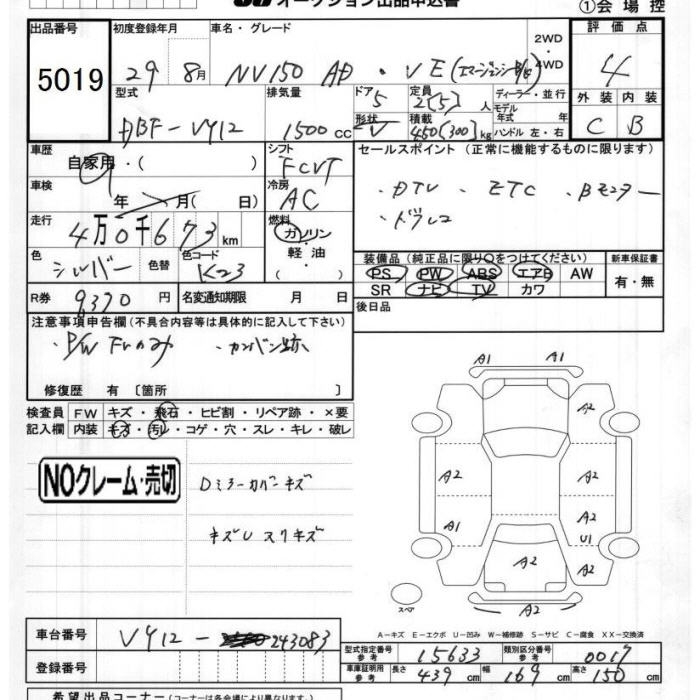 オークション出品申込書
①会場控
出品番号 初度登録年月 車名・グレード 2WD・4WD 評価点
5019 29 8月 NV150 AD・VE(エマージェンシーB/K) 4
型式 排気量 ドア 定員 ディーラー・並行 外装 内装
DBF-VY12 1500cc 5 2[5]人 モデル年式 年式 C B
形状 V 積載 450[300]kg ハンドル 左・右
車歴 シフト セールスポイント (正常に機能するものに限ります)
自家用・( ) FCVT ・DTV ・ETC ・Bモニター
車検 冷房 ・ドラレコ
年 月( 日) AC
走行 燃料
4万0千673km ガソリン・軽油・( )
色 色替 色コード 装備品(純正品に限り○をつけてください) 新車保証書
シルバー K23 PS PW ABS エアB AW 有・無
SR ナビ TV カワ
R券 9370円 名変通知期限 月 日 後日品
注意事項申告欄(不具合内容等は具体的に記入して下さい)
・P/W Frのみ ・カンバン跡
修復歴 有 〔箇所 〕
検査員 FW キズ・飛石・ヒビ割・リペア跡・×要
記入欄 内装 キズ・汚レ・コゲ・穴・スレ・キレ・破レ
NOクレーム・売切
Dミラーカバーキズ
キズU スリキズ
A1 A1
A2
A2 A2
A1 A2
U1
A2 A2
A2
スペア
A−キズ E−エクボ U−凹み W−補修跡 S−サビ C−腐食 XX−交換済
車台番号 VY12-243083
型式指定番号 参考 15633 類別区分番号 参考 0017
登録番号 車庫証明用 参考 長さ 439cm 幅 169cm 高さ 150cm
希望出品コーナー(コーナーは各会場により異なります。)